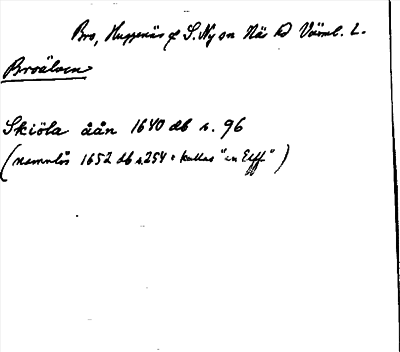 Bro, Huggenäs o S. Ny sn Näs hd Värml. l.
Broälven
Skiöla åån 1640 db s. 96
(namnlös 1652 db s. 254 o kallas "en Elff")